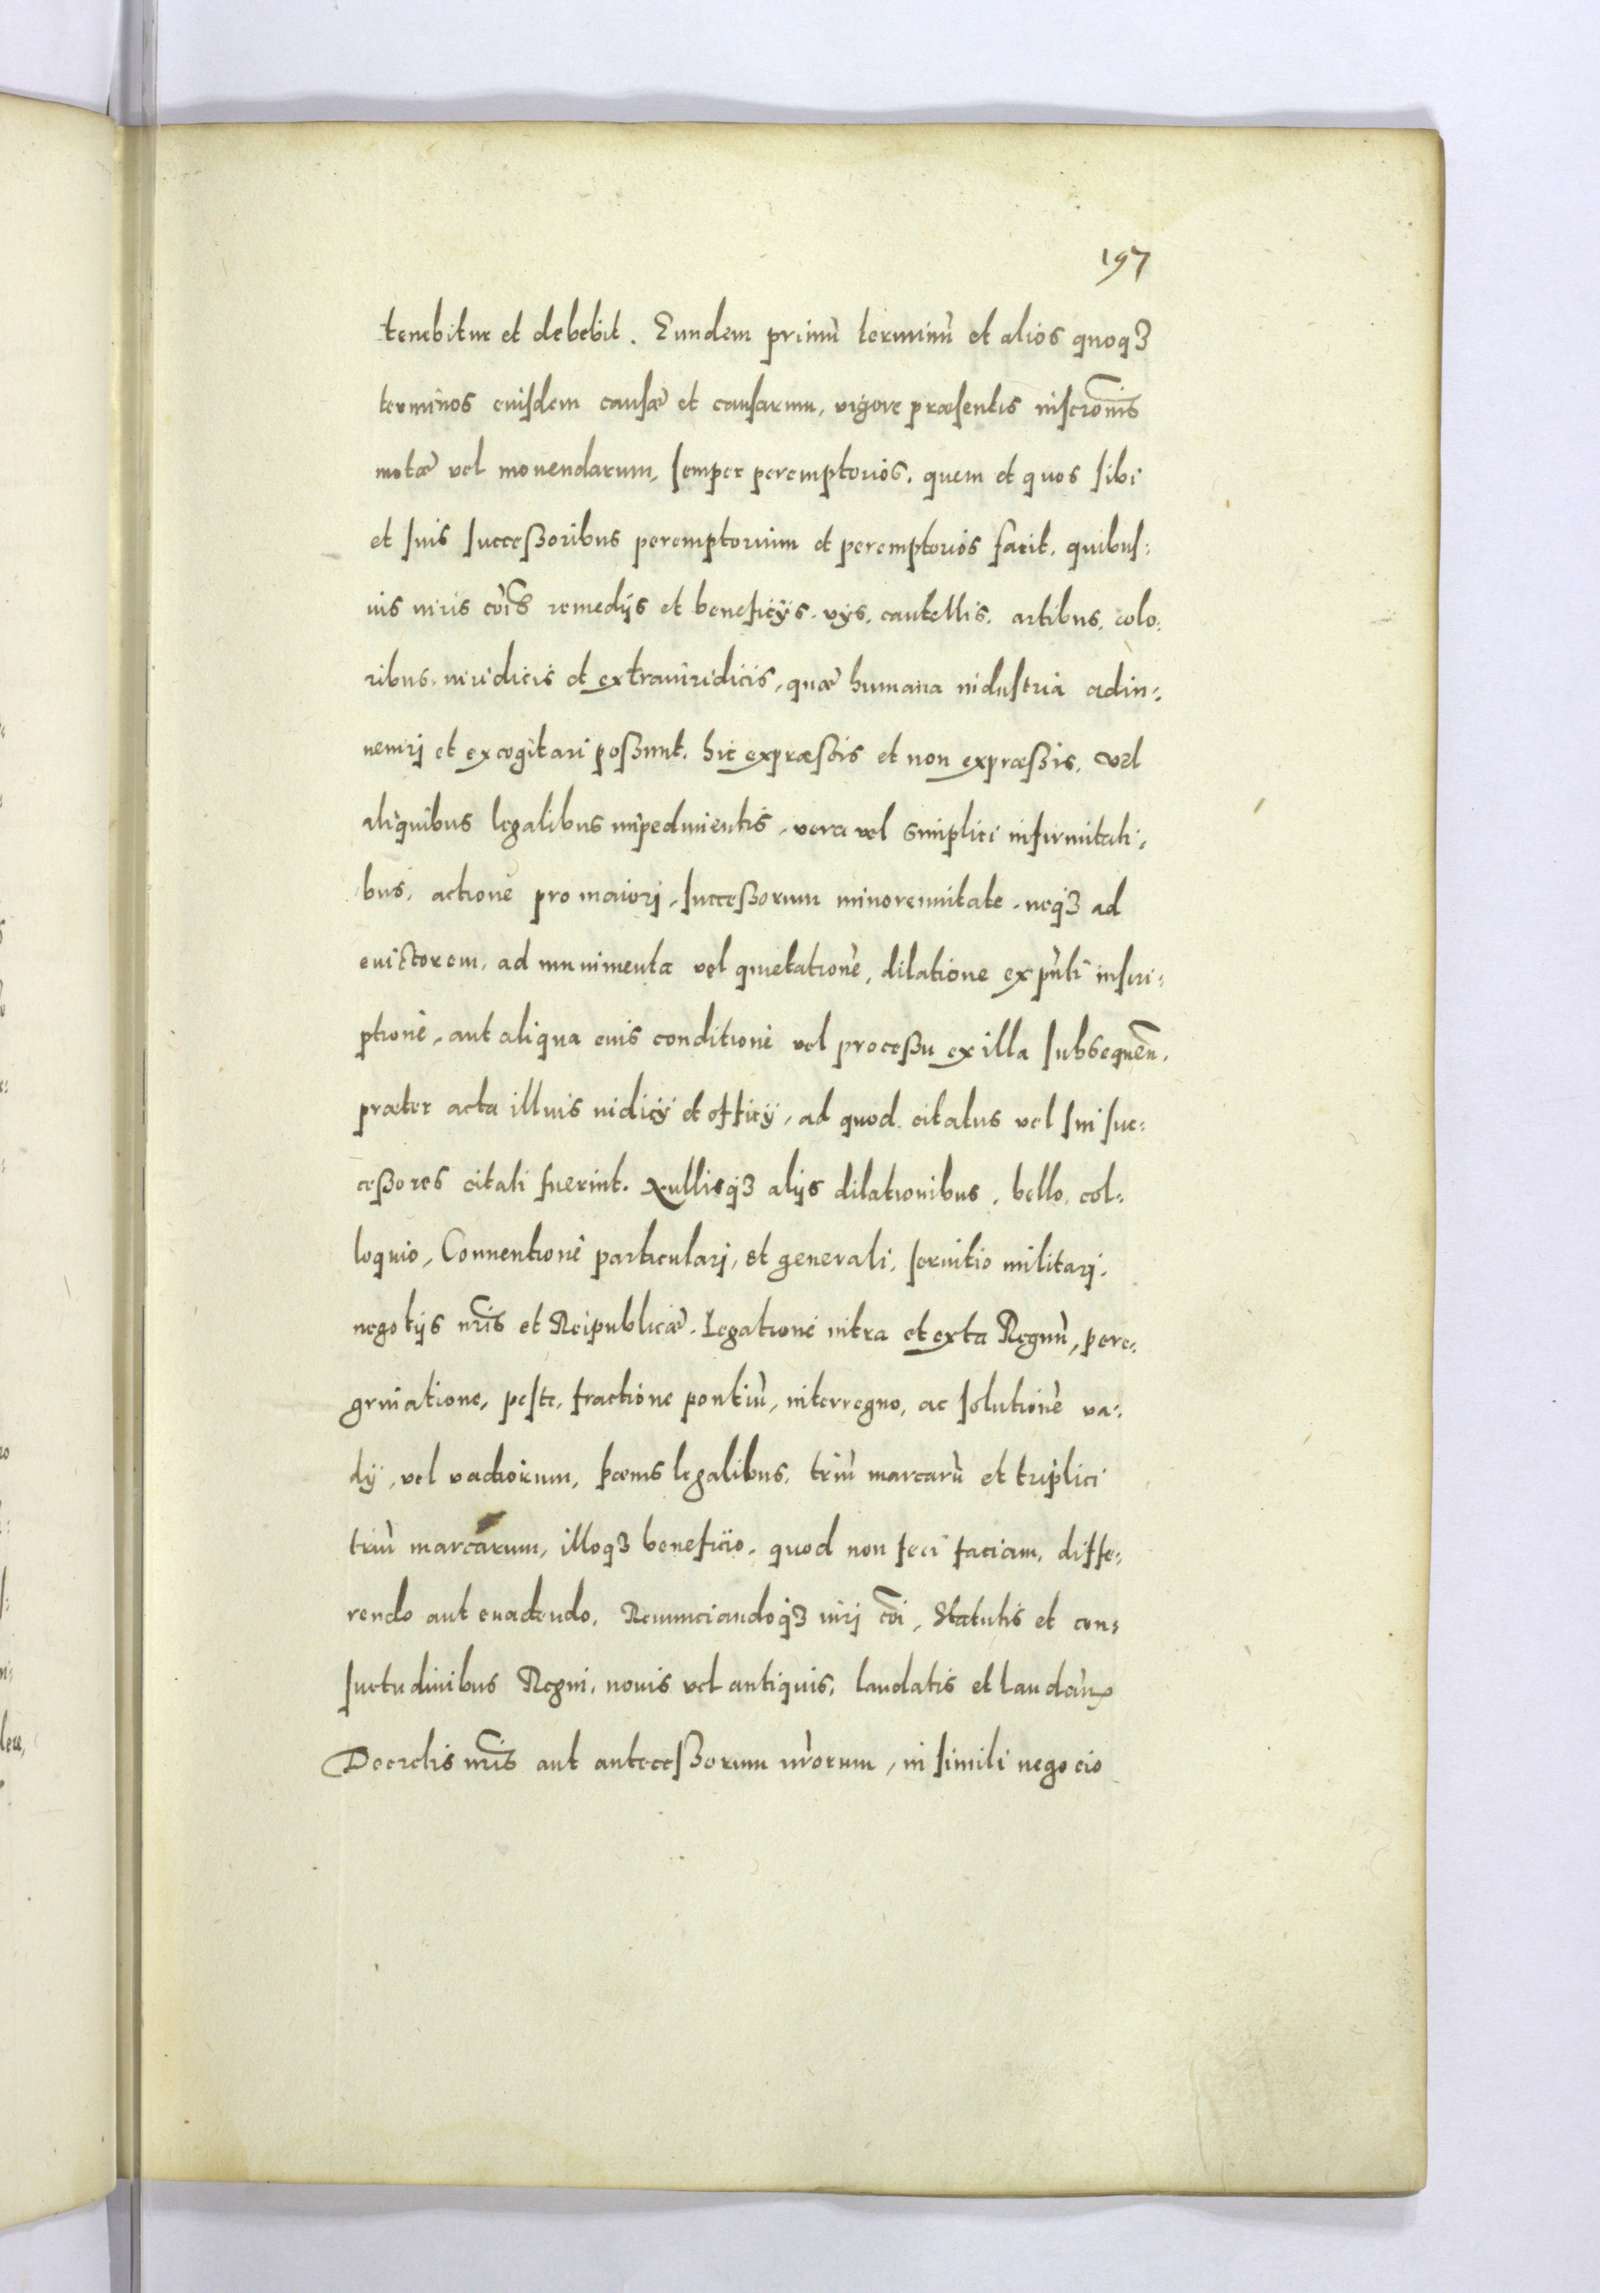 197
tenebitur et debebit. Eundem primũ terminũ et alios quoqȝ
terminos eiusdem causæ et causarum, vigore præsentis inscrõnis
motæ vel mouendarum, semper peremptorios, quem et quos sibi
et suis successoribus peremptorium et peremptorios facit, quibus-
uis iuris cõis remedijs et beneficijs, vijs, cautellis, artibus, colo-
ribus, iuridicis et extraiuridicis, quæ humana industria adin-
uenirj et excogitari possunt, hic expræssis et non expræssis, vel
aliquibus legalibus impedimentis, vera vel simplici infirmitati-
bus, actione pro maiori, successorum minorennitate, neqȝ ad
euictorem, ad munimenta vel quietationẽ, dilatione ex pñti inscri-
ptione, aut aliqua eius conditione vel processu ex illa subsequeñ.
præter acta illius iudicij et officij, ad quod citatus vel sui suc-
cessores citati fuerint. Nullisqȝ alijs dilationibus, bello, col-
loquio, Conuentione particularj, et generali, seruitio militarj,
negotijs nr̃is et Reipublicæ. Legatione intra et exta Regnũ, pere-
grinatione, peste, fractione pontiũ, interregno, ac solutionẽ va-
dij, vel vadiorum, pœnis legalibus, triũ marcarũ et triplici
triũ marcarum, illoqȝ beneficio, quod non feci faciam, diffe-
rendo aut euadendo, Renunciandoqȝ iurj cõi, Statutis et con-
suetudinibus Regni, nouis vel antiquis, laudatis et laudañ
Decretis nr̃is aut antecessorum nr̃orum, in simili negocio